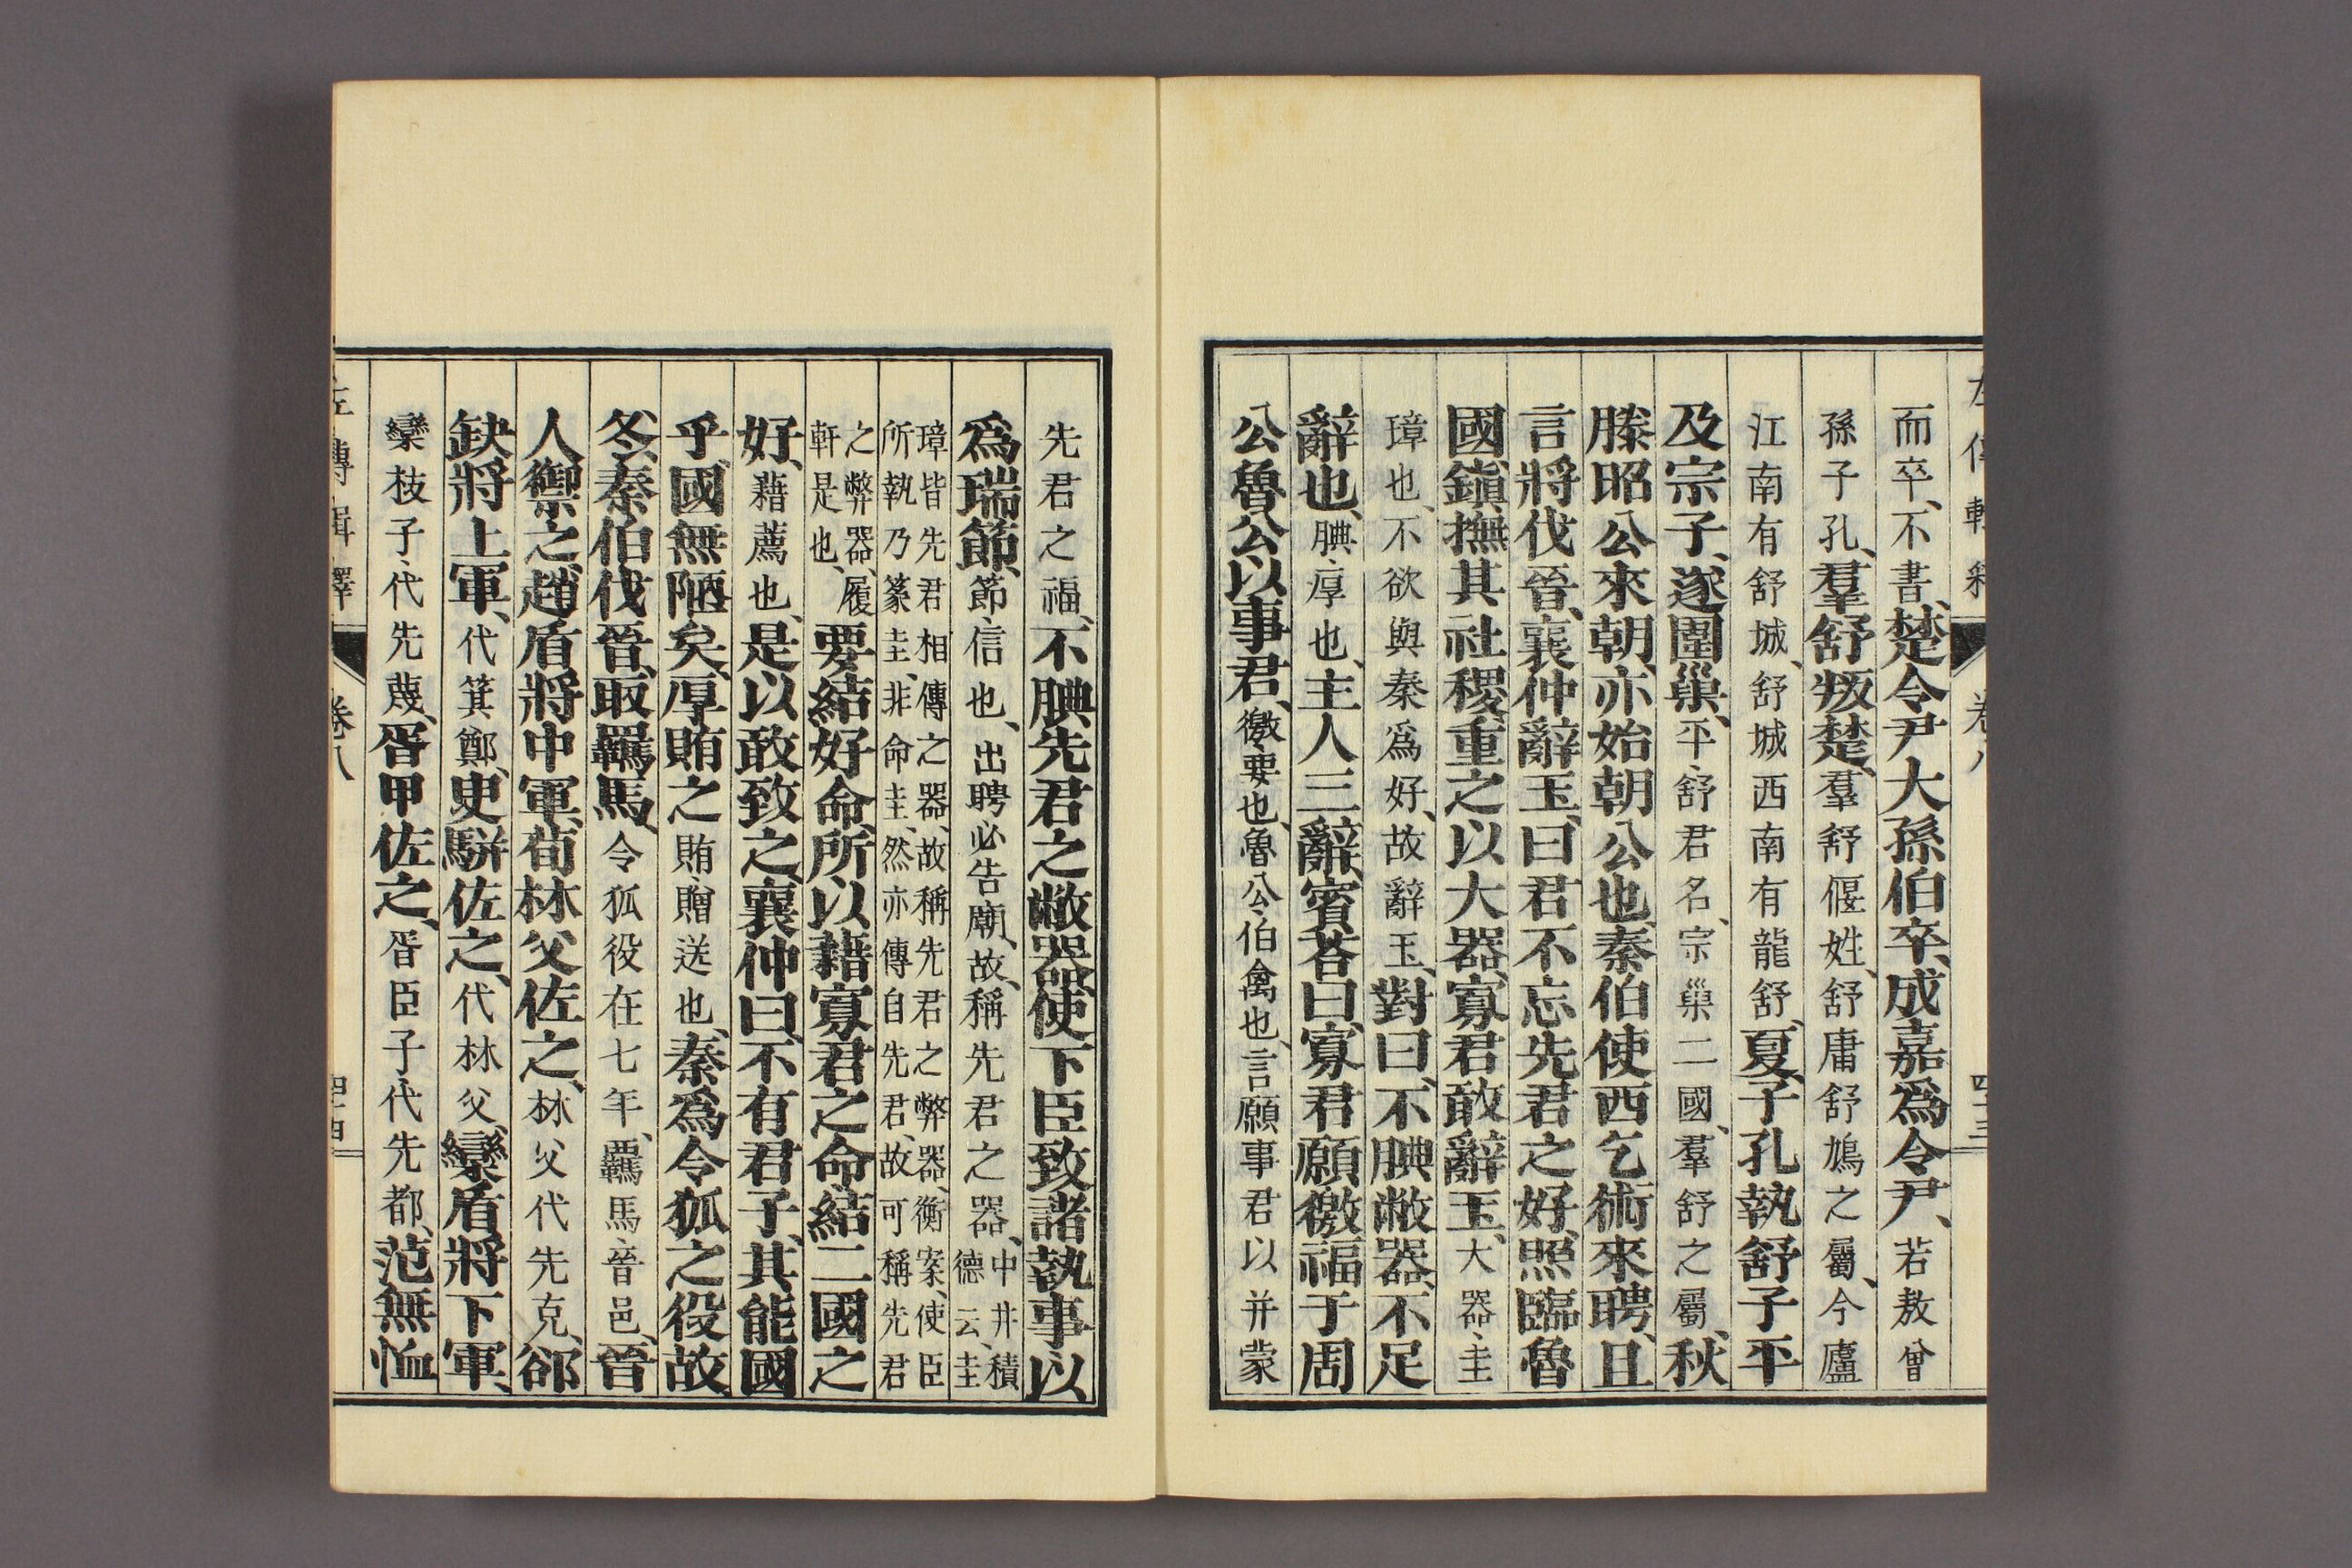 左傳輯釋 卷八 四十三
而卒、不書、楚令尹大孫伯卒、成嘉爲令尹、若敖曾
孫子孔、羣舒叛楚、羣舒偃姓、舒庸舒鳩之屬、今廬
江南有舒城、舒城西南有龍舒、夏、子孔執舒子平
及宗子、遂圍巢、平、舒君名、宗巢二國、羣舒之屬、秋、
滕昭公來朝、亦始朝公也、秦伯使西乞術來聘、且
言將伐晉、襄仲辭玉、曰、君不忘先君之好、照臨魯
國、鎭撫其社稷、重之以大器、寡君敢辭玉、大器、圭
璋也、不欲與秦爲好、故辭玉、對曰、不腆敝器、不足
辭也、腆、厚也、主人三辭、賓荅曰、寡君願徼福于周
公魯公以事君、徼、要也、魯公、伯禽也、言願事君以并蒙
先君之福、不腆先君之敝器、使下臣致諸執事、以
爲瑞節、節、信也、出聘必告廟、故稱先君之器、中井積德云、圭
璋皆先君相傳之器、故稱先君之弊器、衡案、使臣所執乃篆圭、非命圭、然亦傳自先君、故可稱先君
之弊器、履軒是也、要結好命、所以藉寡君之命、結二國之
好、藉、薦也、是以敢致之、襄仲曰、不有君子、其能國
乎、國無陋矣、厚賄之、賄、贈送也、秦爲令狐之役故、
冬、秦伯伐晉、取羈馬、令狐役在七年、羈馬、晉邑、晉
人禦之、趙盾將中軍、荀林父佐之、林父代先克、郤
缺將上軍、代箕鄭、臾駢佐之、代林父、欒盾將下軍、
欒枝子、代先蔑、胥甲佐之、胥臣子、代先都、范無恤
左傳輯釋 卷八 四十四